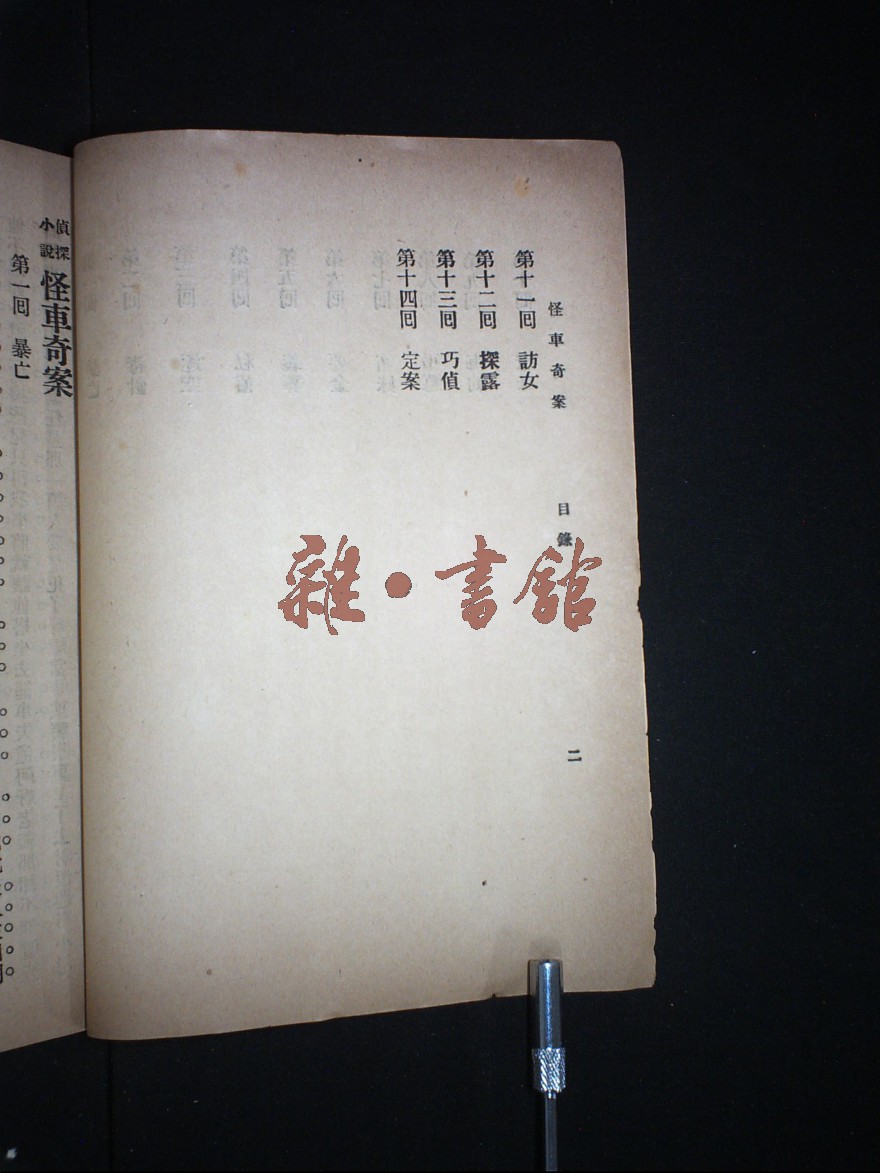 怪車奇案 目錄 二
第十一囘 訪女
第十二囘 探露
第十三囘 巧偵
第十四囘 定案
偵探小說 怪車奇案
第一囘 暴亡
雜·書館